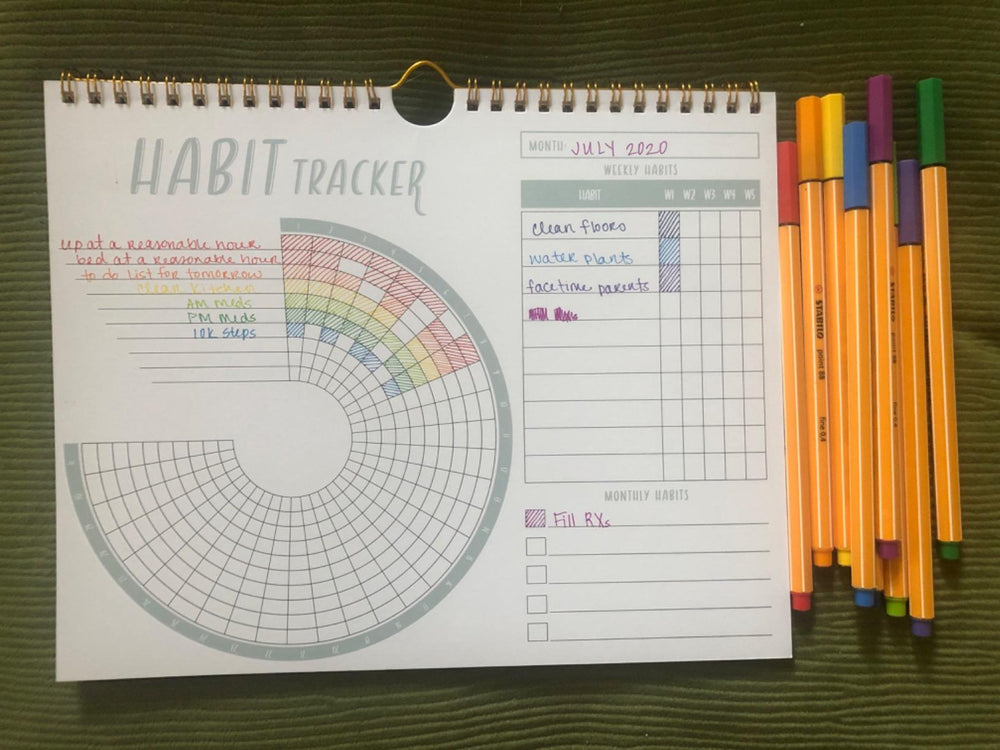 HABIT TRACKER
MONTH: JULY 2020
WEEKLY HABITS
HABIT W1 W2 W3 W4 W5
clean floors
water plants
facetime parents
up at a reasonable hour
bed at a reasonable hour
to do list for tomorrow
clean kitchen
AM meds
PM meds
10k steps
1 2 3 4 5
MONTHLY HABITS
Fill RXs
STABILO
point 88
fine 0.4